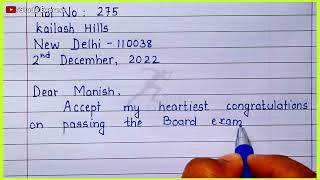 Plot No : 275
Kailash Hills
New Delhi - 110038
2nd December, 2022
Dear Manish.
Accept my heartiest congratulations
on passing the Board exam